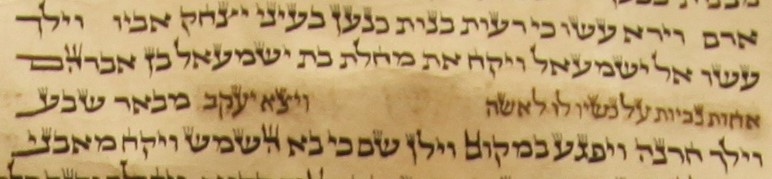 ארם וירא עשו כי רעות בנות כנען בעיני יצחק אביו וילך
עשו אל ישמעאל ויקח את מחלת בת ישמעאל בן אברהם
אחות נביות על נשיו לו לאשה ויצא יעקב מבאר שבע
וילך חרנה ויפגע במקום וילן שם כי בא השמש ויקח מאבני